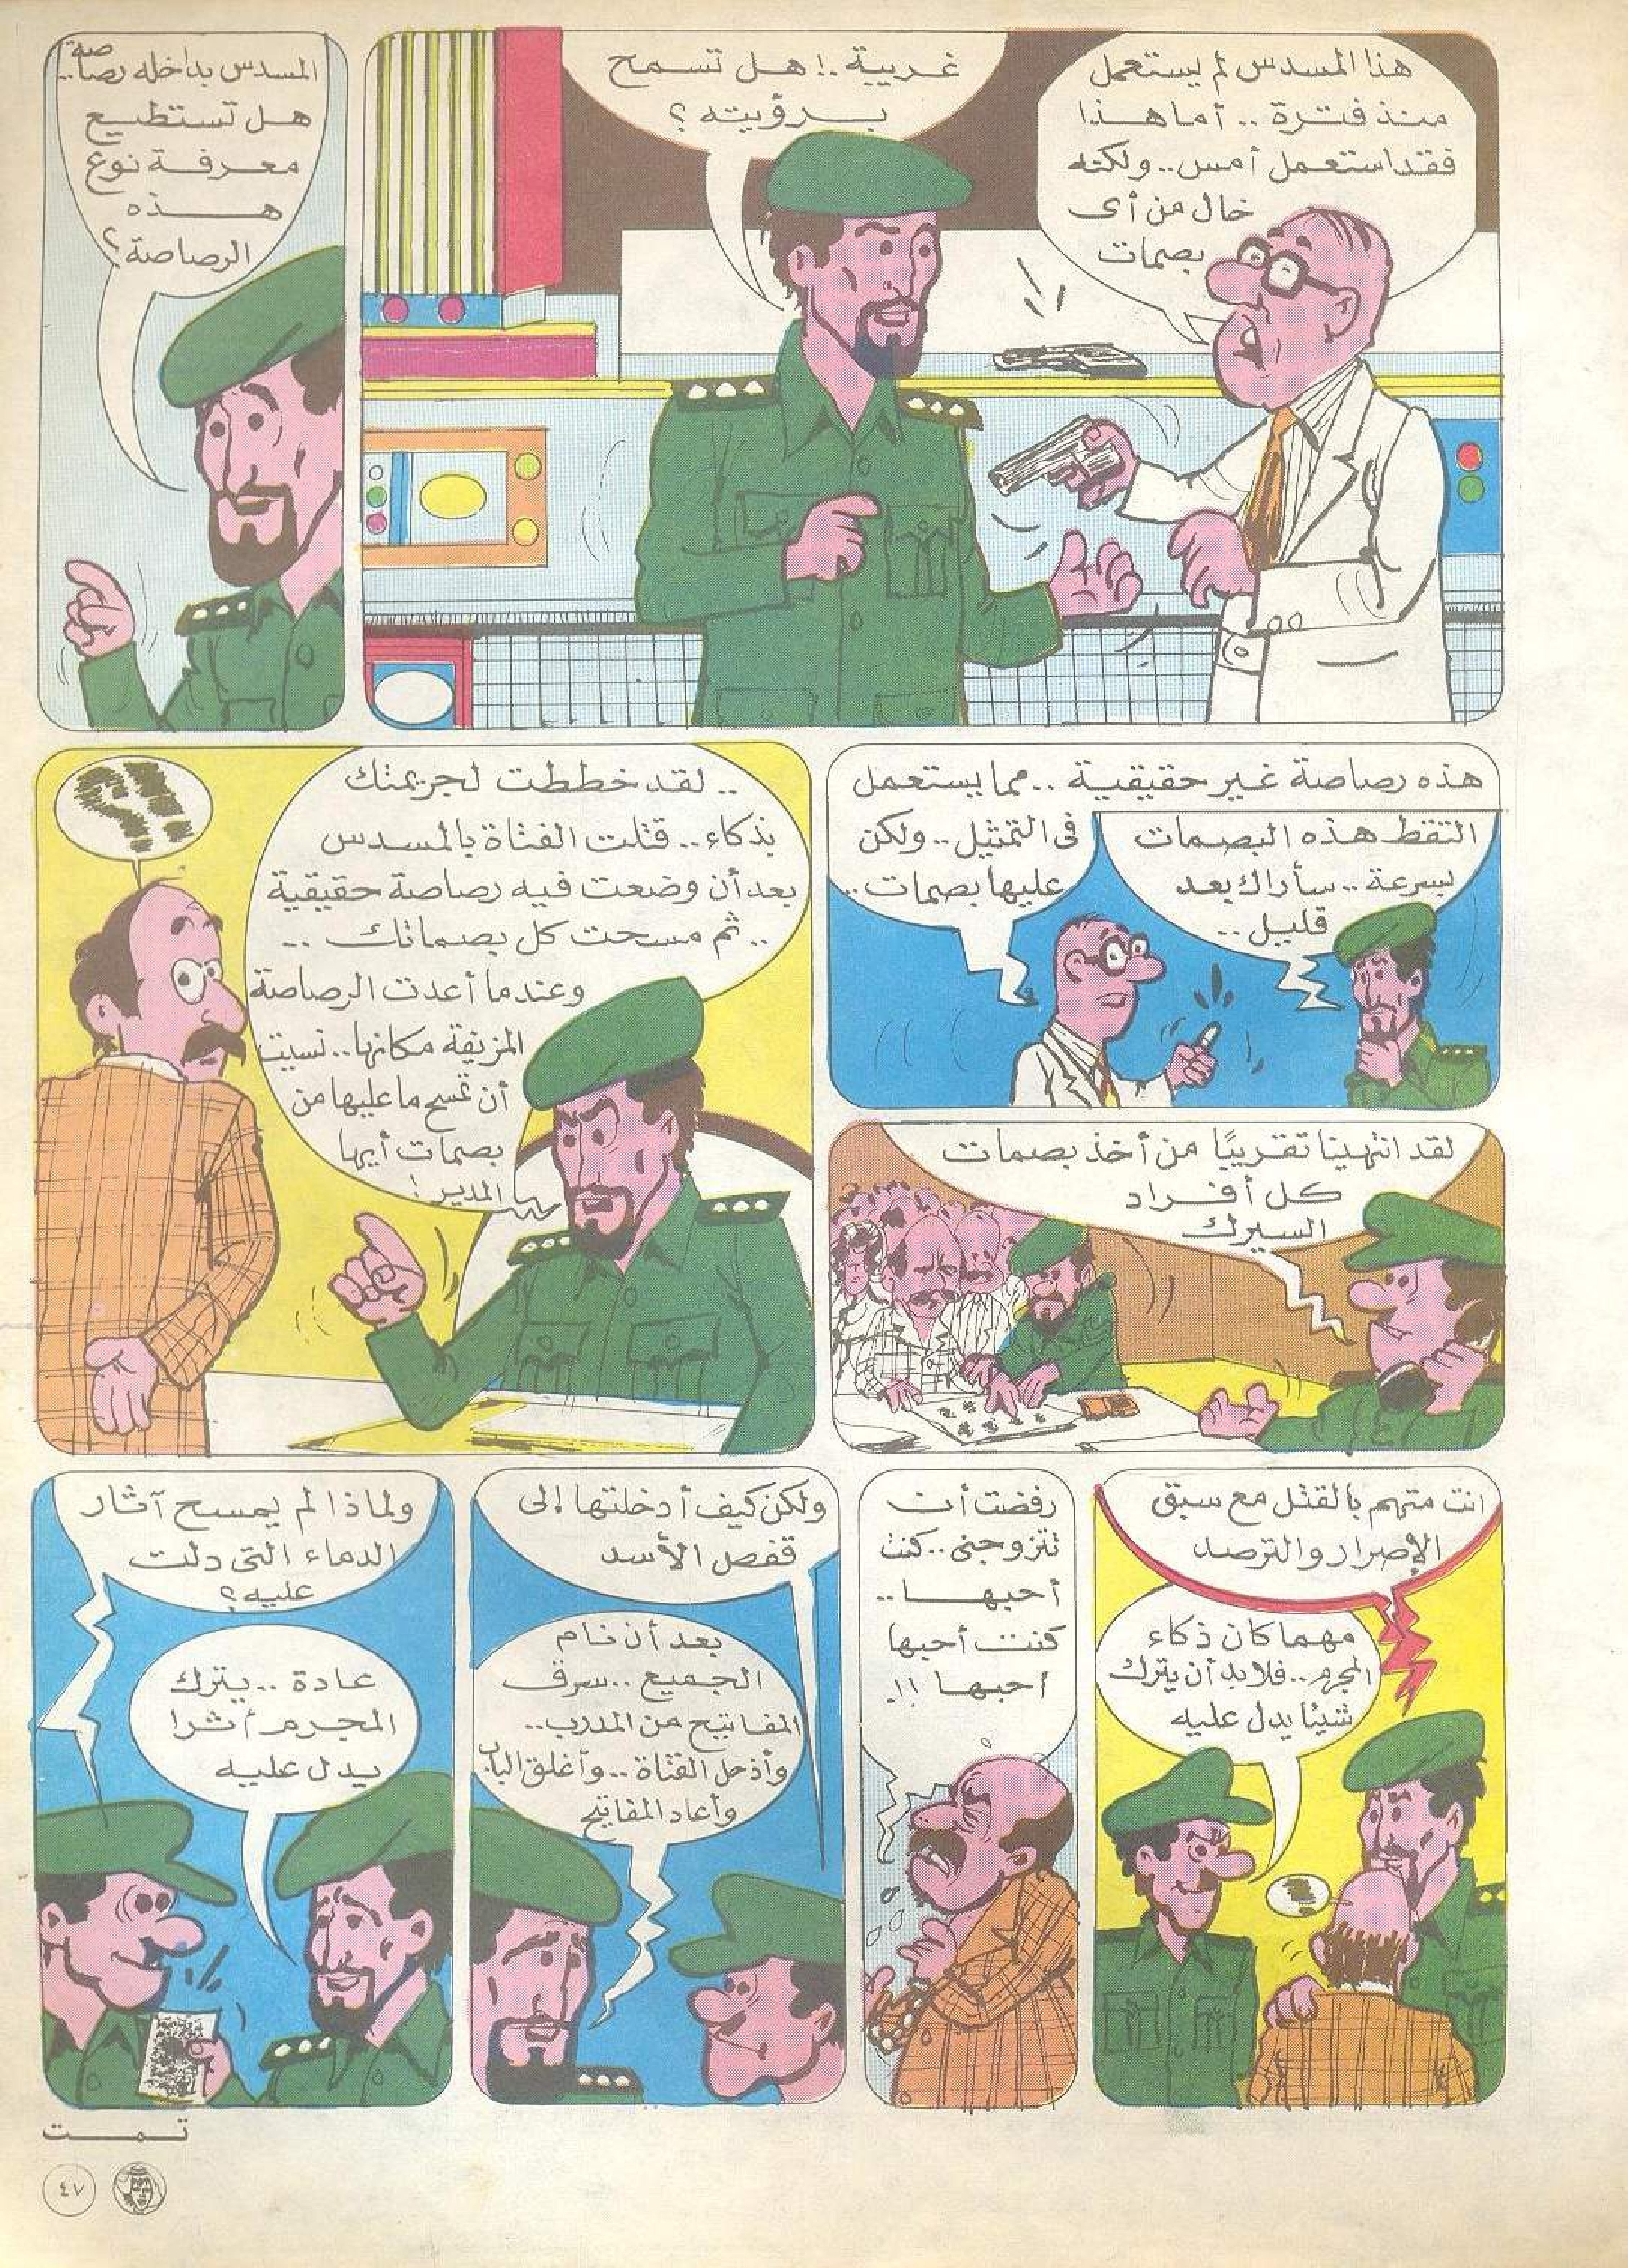 هذا المسدس لم يستعمل
منذ فترة .. أما هذا
فقد استعمل أمس.. ولكنه
خال من أى
بصمات
غريبة..! هل تسمح
برؤيته ؟
المسدس بداخله رصاصة..
هل تستطيع
معرفة نوع
هذه
الرصاصة؟
هذه رصاصة غير حقيقية .. مما يستعمل
فى التمثيل.. ولكن
عليها بصمات ..
التقط هذه البصمات
بسرعة .. سأراك بعد
قليل ..
لقد انتهينا تقريبًا من أخذ بصمات
كل أفراد
السيرك
.. لقد خططت لجريمتك
بذكاء.. قتلت الفتاة بالمسدس
بعد أن وضعت فيه رصاصة حقيقية
.. ثم مسحت كل بصماتك ..
وعندما أعدت الرصاصة
المزيفة مكانها.. نسيت
أن تمسح ما عليها من
بصمات أيها
المدير !
انت متهم بالقتل مع سبق
الإصرار والترصد
مهما كان ذكاء
المجرم.. فلابد أن يترك
شيئا يدل عليه
رفضت أن
تتزوجنى.. كنت
أحبها ..
كنت أحبها
أحبها !!.
ولكن كيف أدخلتها إلى
قفص الأسد
بعد أن نام
الجميع .. سرق
المفاتيح من المدرب..
وأدخل الفتاة .. وأغلق الباب
وأعاد المفاتيح
ولماذا لم يمسح آثار
الدماء التى دلت
عليه ؟
عادة .. يترك
المجرم أثرا
يدل عليه
تمت
٤٧